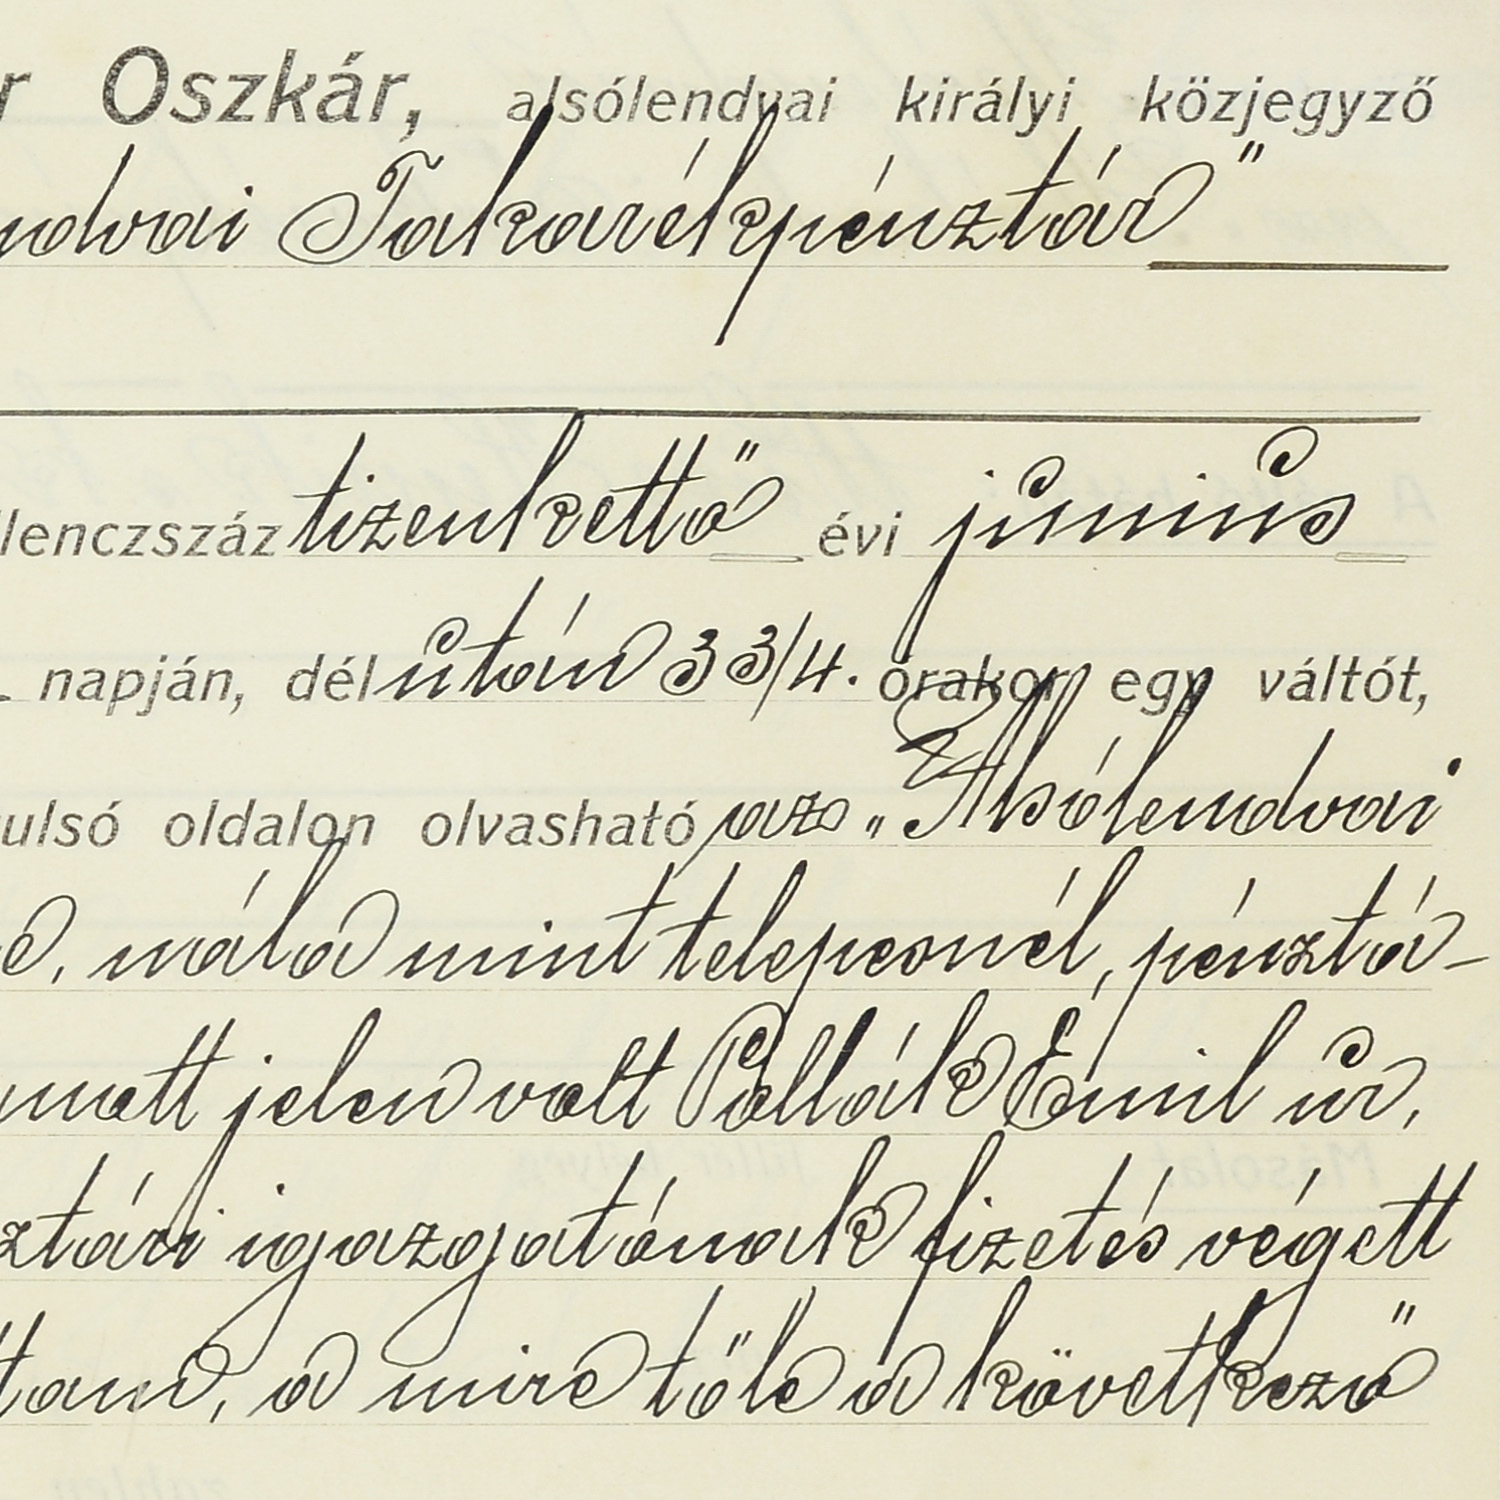 r Oszkár, alsólendvai királyi közjegyző
ndvai Takarékpénztár"
lenczszáz tizenkettő évi június
napján, délután 3 3/4. órakor egy váltót,
ulsó oldalon olvasható az „Alsólendvai
e, nála mint telepesnél, pénztá-
matt jelen volt Pollák Emil úr,
ztári igazgatónak fizetés végett
ttam, a mire tőle a következő